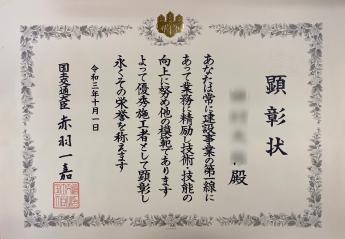 顕彰状
殿
あなたは常に建設事業の第一線に
あって業務に精励し技術・技能の
向上に努め他の模範であります
よって優秀施工者として顕彰し
永くその栄誉を称えます
令和三年十月一日
国土交通大臣 赤羽一嘉